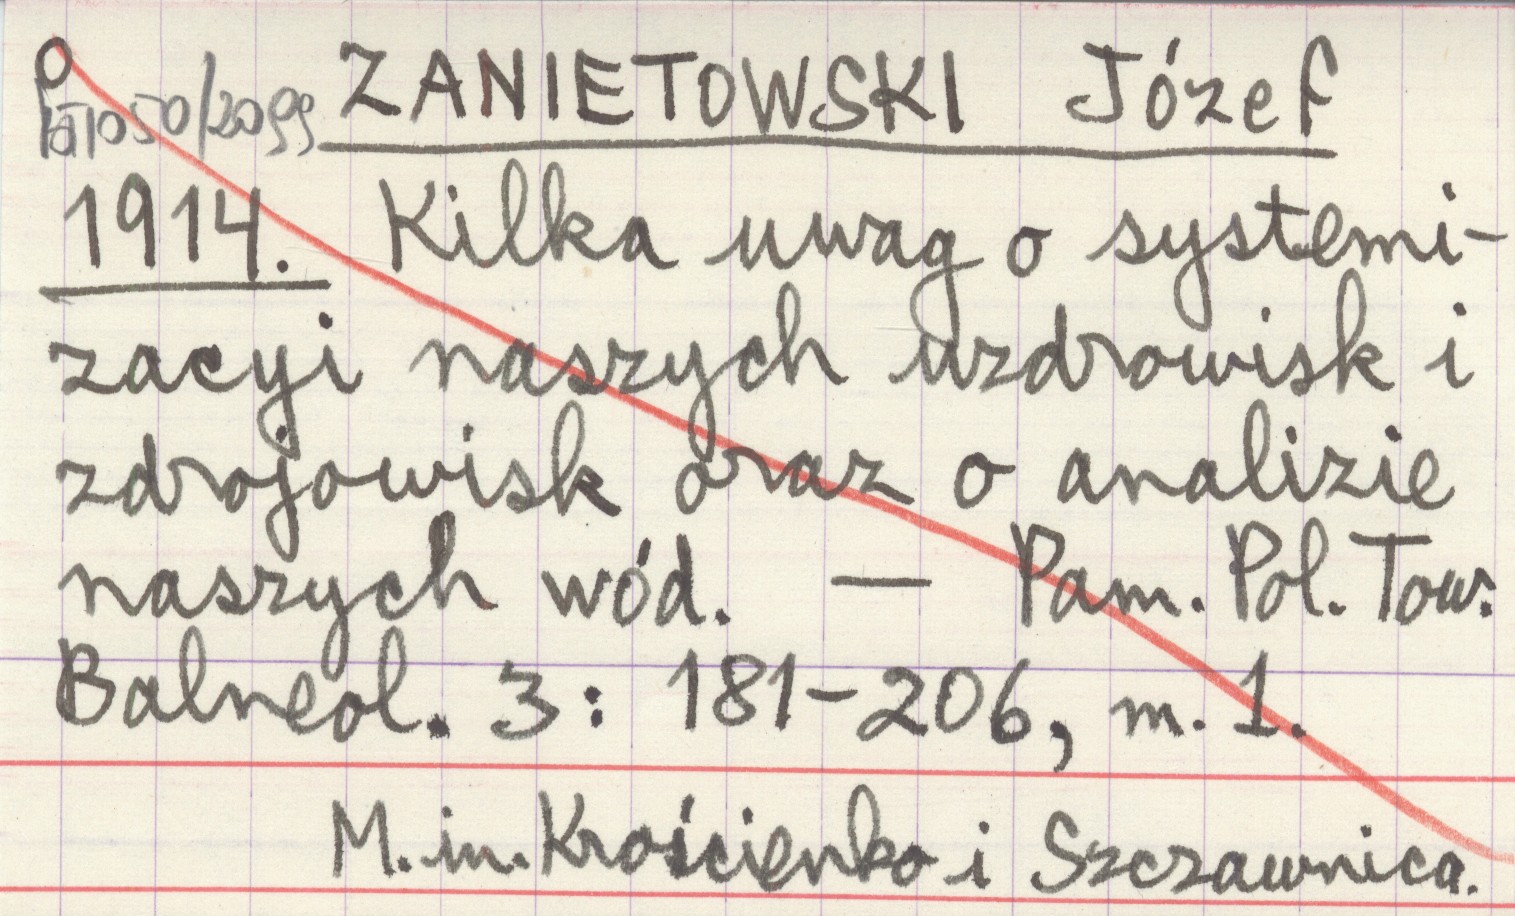 ZANIETOWSKI Józef
1914. Kilka uwag o systemi-
zacyi naszych uzdrowisk i
zdrojowisk oraz o analizie
naszych wód. — Pam. Pol. Tow.
Balneol. 3: 181-206, m. 1.
M. in. Krościenko i Szczawnica.